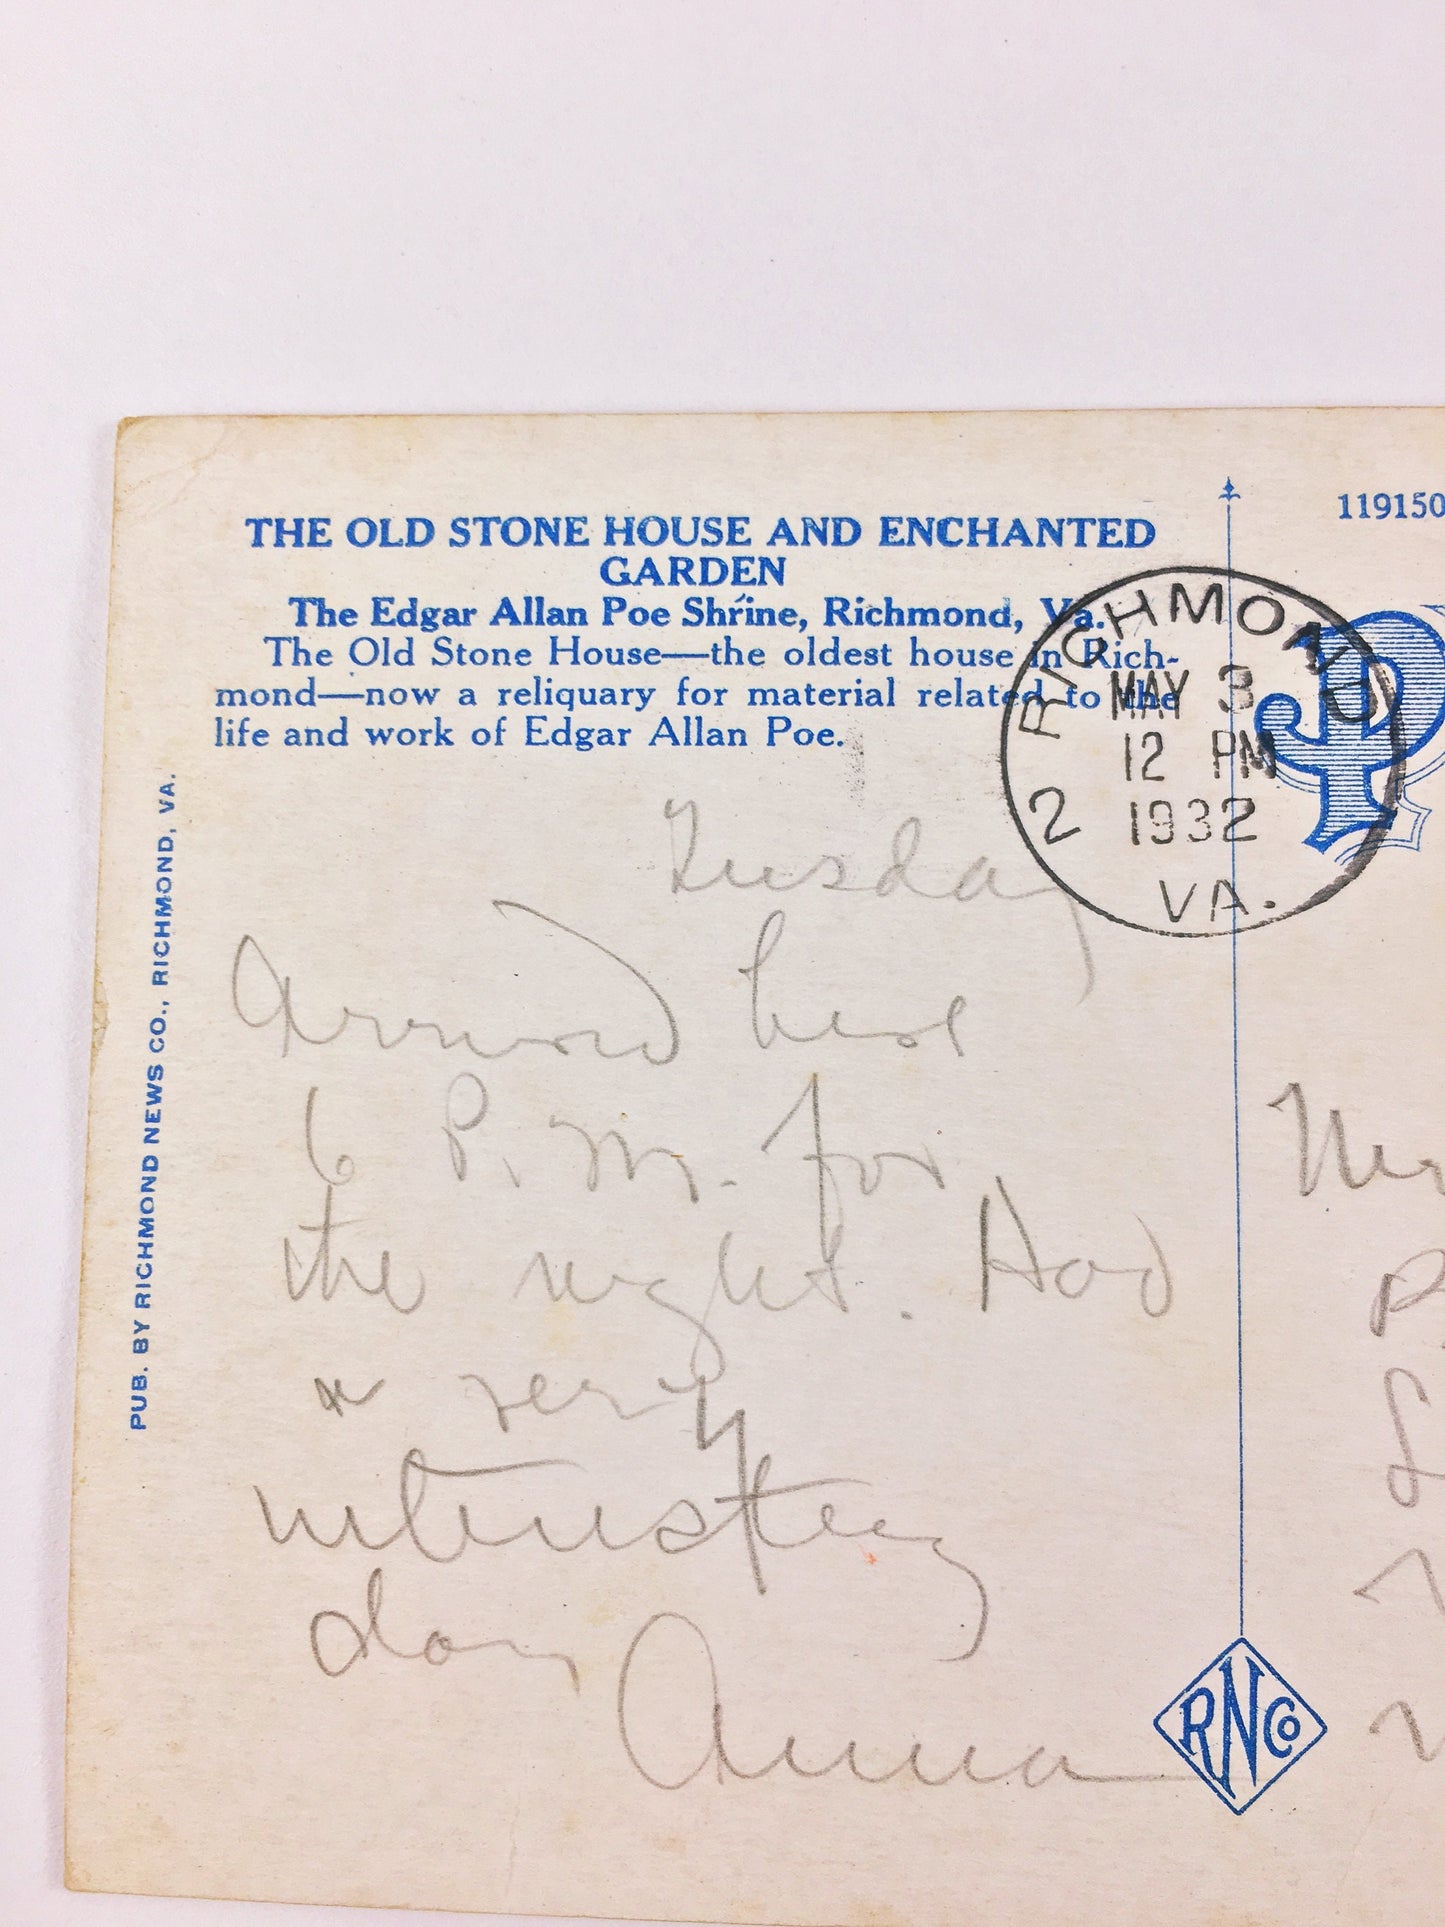 THE OLD STONE HOUSE AND ENCHANTED
GARDEN
The Edgar Allan Poe Shrine, Richmond, Va.
The Old Stone House—the oldest house in Rich-
mond—now a reliquary for material related to the
life and work of Edgar Allan Poe.
PUB. BY RICHMOND NEWS CO., RICHMOND, VA.
119150
2 RICHMOND
MAY 3
12 PM
1932
VA.
Tuesday
Arrived here
6 P. M. for
the night. Had
a very
interesting
day
Anna
RNCo